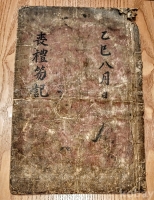 乙巳八月 日
喪禮笏記